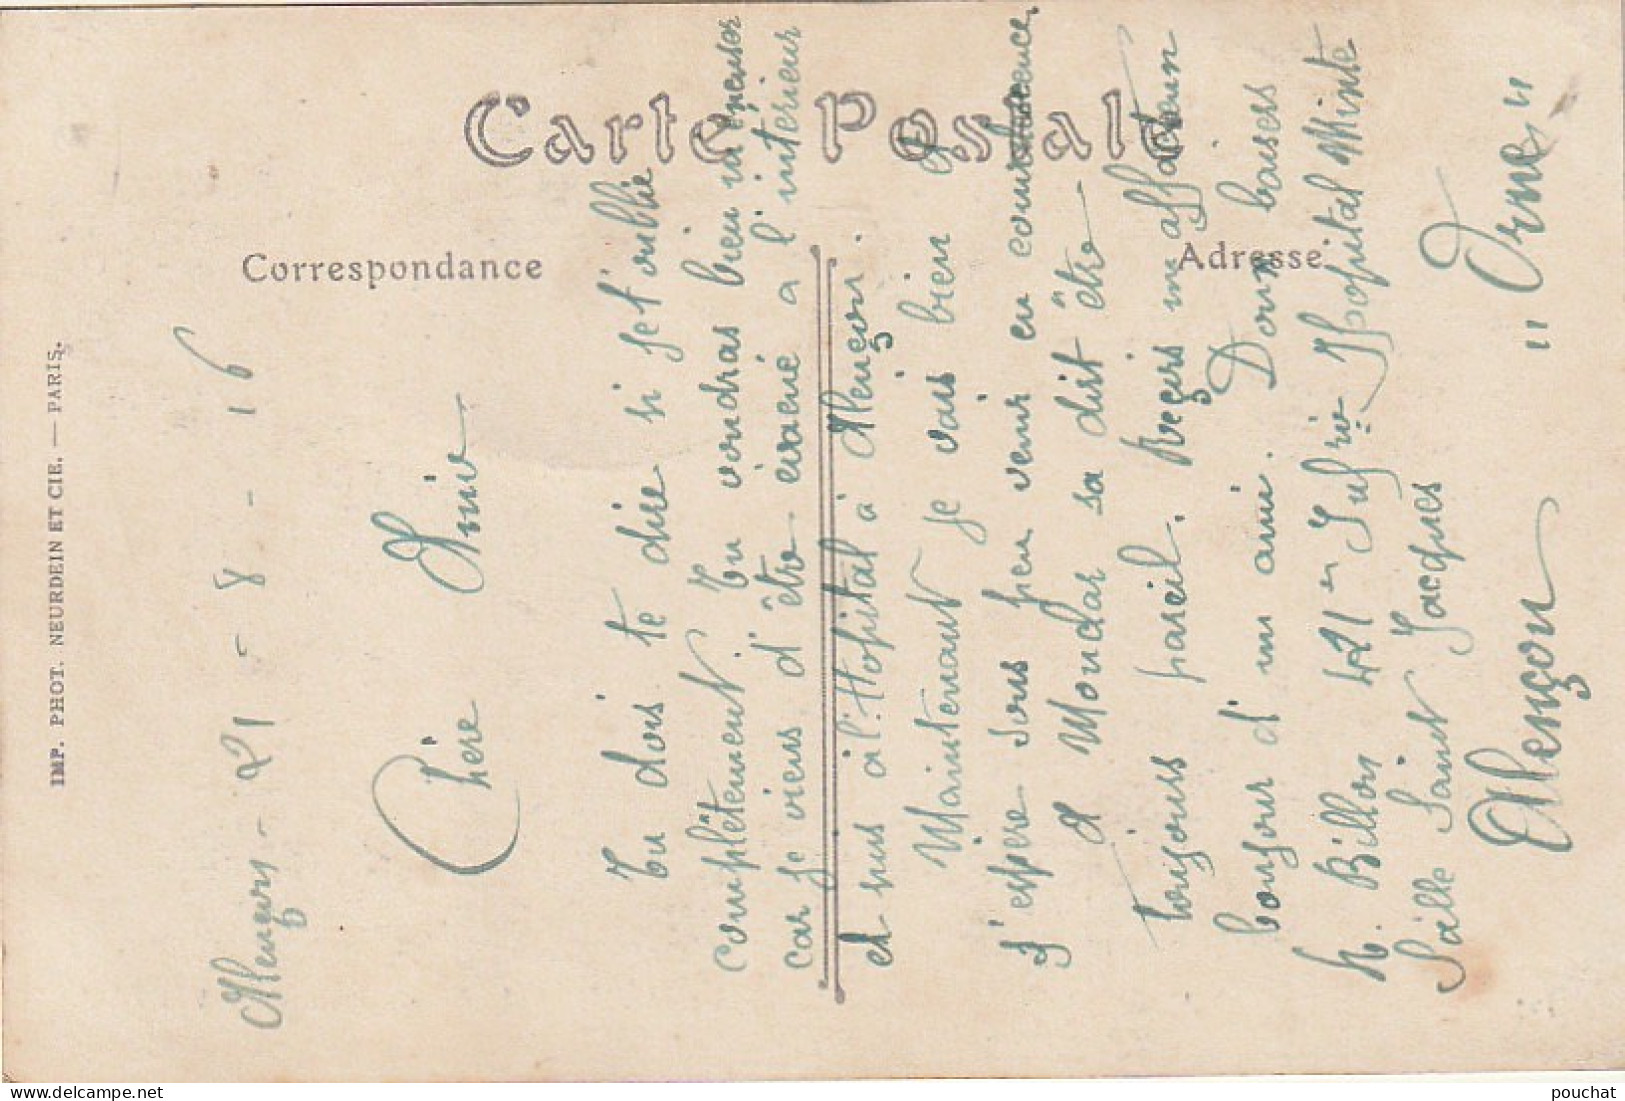 Carte Postale
Correspondance
Adresse
IMP. PHOT. NEURDEIN ET CIE. — PARIS.
Alençon - 21 - 8 - 16
Chère Amie
Tu dois te dire si je t'oublie
complètement. Tu voudras bien m'excuser
car je viens d'être évacué a l'intérieur
et suis à l'Hopital à Alençon.
Maintenant je vais bien et
j'espère sous peu venir en
a Mondar sa dist être
toujours pareil. Reçois un affectueux
bonjour d'un ami. Doux baisers
h. Billon 421e Infrie Hopital Mixte
Salle Saint Jacques
Alençon " Orne "
pouchat